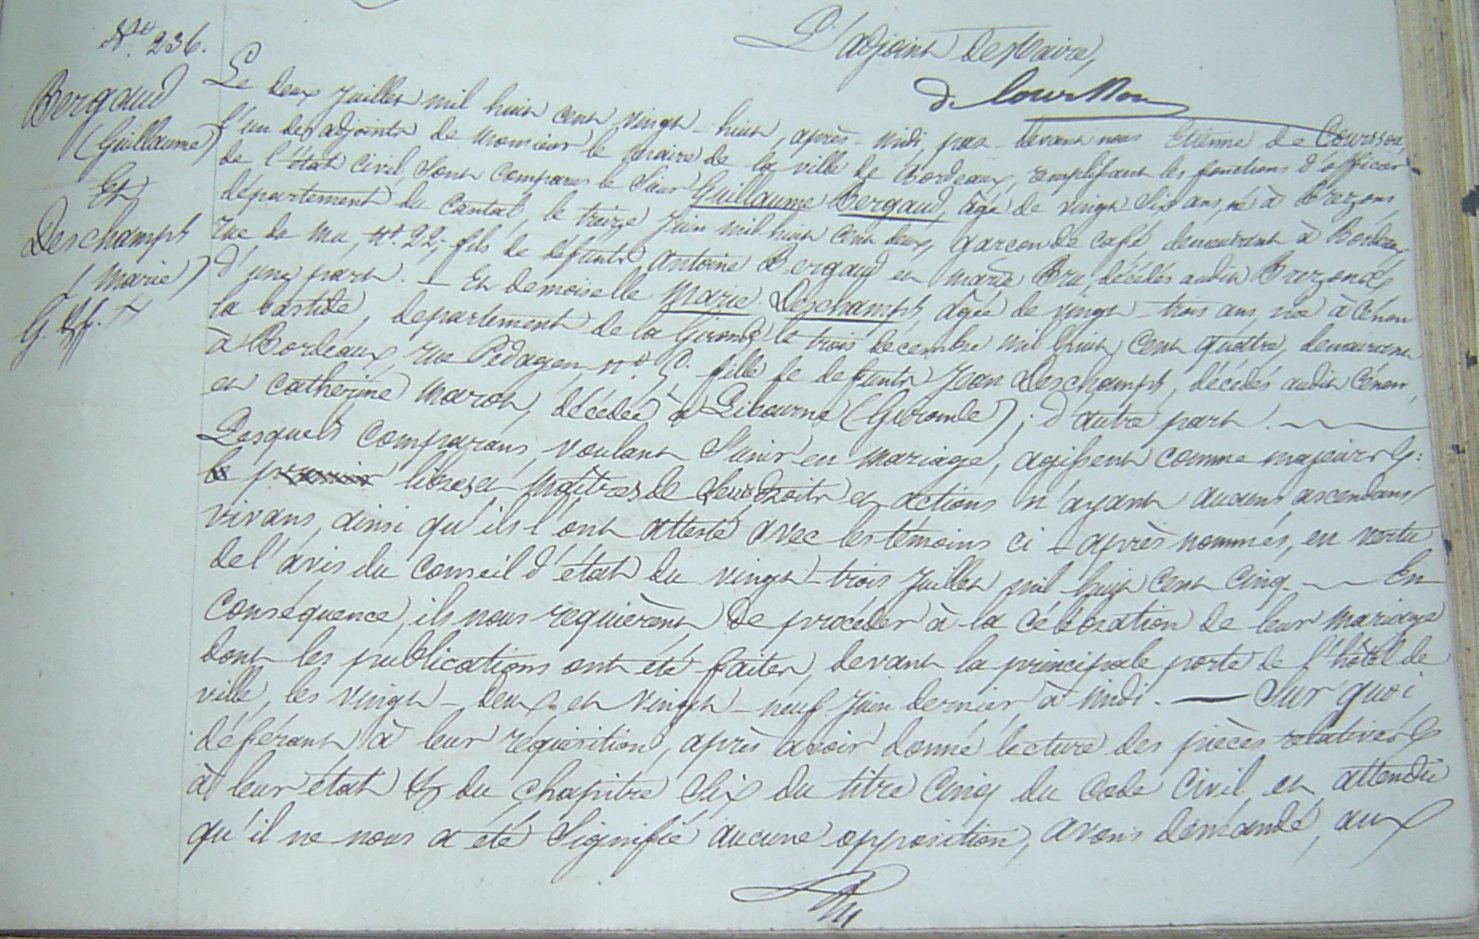 L'adjoint de Maire,
de Coursson
N° 236.
Bergaud
(Guillaume)
Et
Deschamps
(Marie)
Le deux Juillet mil huit cent vingt-huit, après-midi, par-devant nous Etienne de Coursson,
l'un des adjoints de Monsieur le Maire de la ville de Bordeaux, remplissant les fonctions d'officier
de l'état civil, sont comparus le Sieur Guillaume Bergaud, âgé de vingt six ans, né à Brezons
département du Cantal, le treize Juin mil huit cent deux, garçon de café, demeurant à Bordeaux,
rue de Mu, n°. 22, fils de défunts Antoine Bergaud et Marie Bru, décédés audit Brezons
d'une part. — Et demoiselle Marie Deschamps, âgée de vingt-trois ans, née à Cénon
la bastide, département de la Gironde le trois décembre mil huit cent quatre, demeurant
à Bordeaux, rue n°. fille de defunts Jean Deschamps, décédés audit Cénon,
et Catherine Marot, décédée à Libourne (Gironde); d'autre part.
Lesquels comparans, voulant s'unir en mariage, agissent comme majeurs
libres et Maîtres de leurs droits et actions n'ayant aucuns ascendans
vivans, ainsi qu'ils l'ont attesté avec les témoins ci-après nommés, en vertu
de l'avis du Conseil d'état du vingt-trois Juillet mil huit cent cinq. — En
conséquence, ils nous requièrent de procéder à la célébration de leur mariage
dont les publications ont été faites, devant la principale porte de l'hôtel de
ville, les vingt-deux et vingt-neuf Juin dernier à midi. — Sur quoi,
déférant à leur réquisition, après avoir donné lecture des pièces relatives
à leur état & du chapitre six du titre cinq du Code Civil et attendu
qu'il ne nous a été signifié aucune opposition, avons demandé, aux